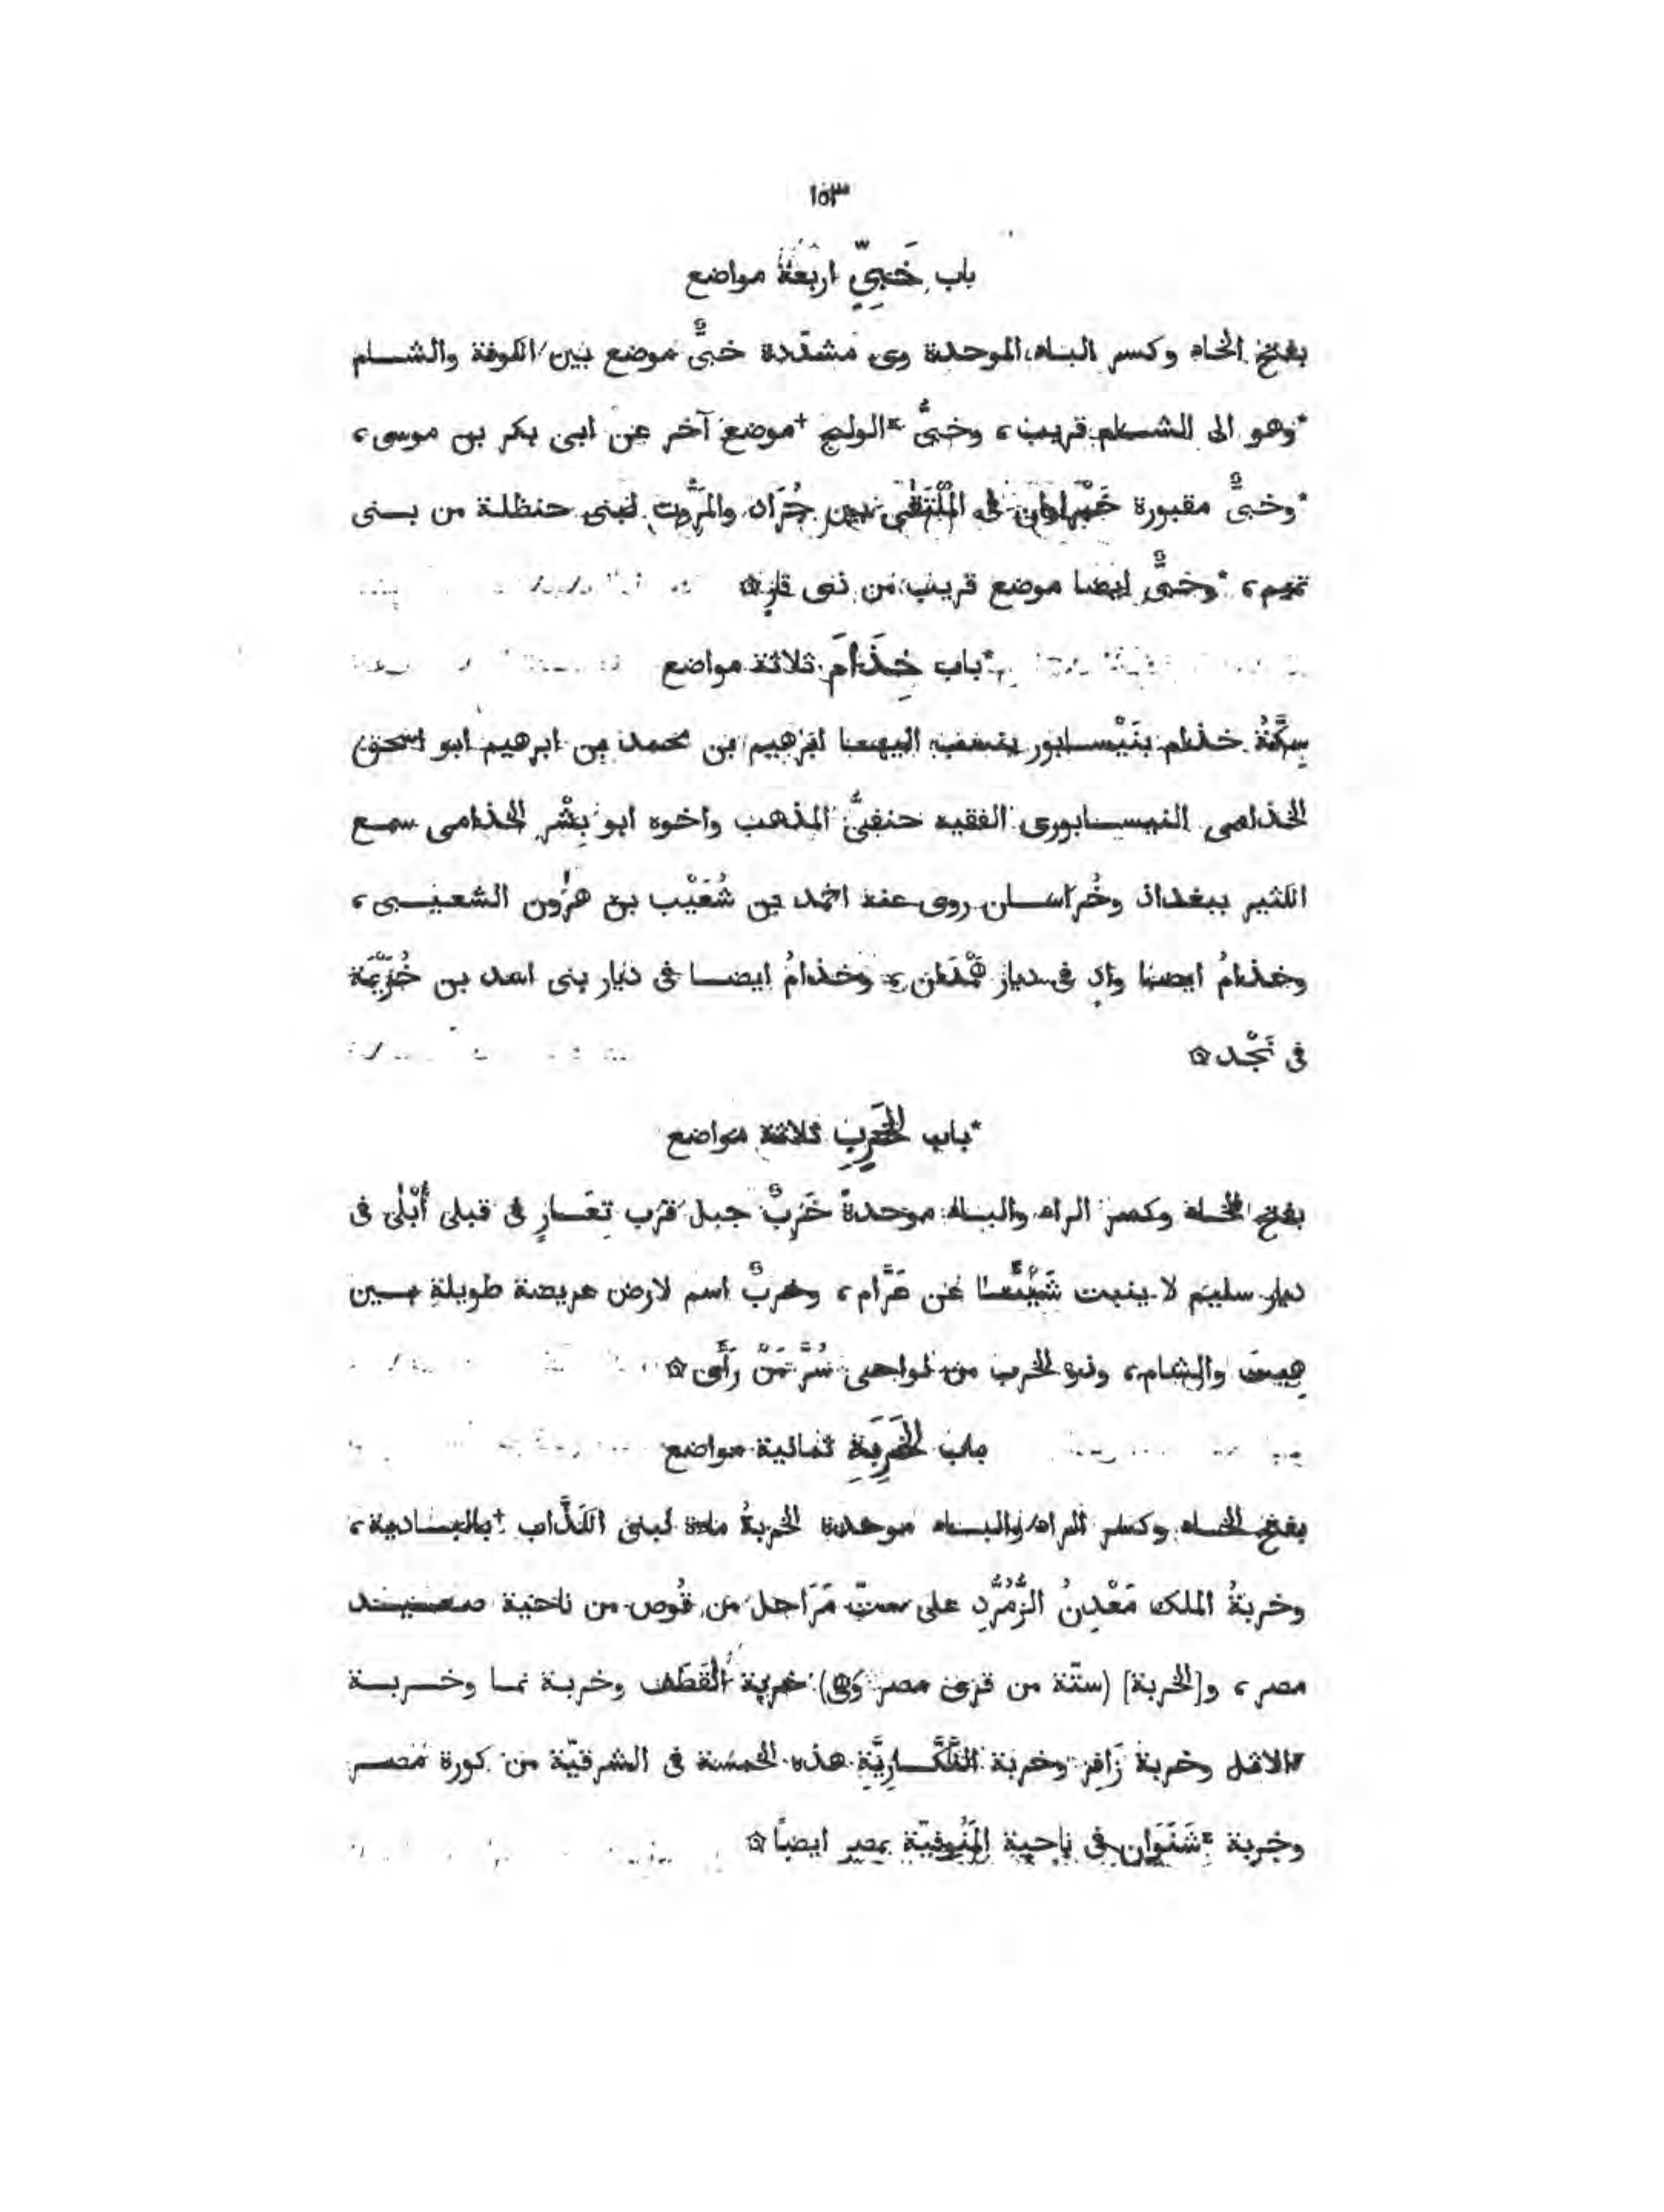 ١٥٣
باب خَبِيٍّ اربعة مواضع
بفتح الخاء وكسر الباء الموحدة وى مشدّدة خبىٌّ موضع بين الكوفة والشام
*وهو الى الشام قريب، وخبىُّ *الوليج +موضع آخر عن ابى بكر بن موسى،
*وخبىٌّ مقبورة خَبْراوان فى المُلْتَقٰى بين جُرَاد والمَرُّوت لبنى حنظلة من بنى
تميم، *وخبىٌّ ايضا موضع قريب من ذى قارٍ۞
*باب خِذَامَ ثلاثة مواضع
سِكَّةُ خذام بنَيْسابور ينسب اليها ابرهيم بن محمد بن ابرهيم ابو اسحق
الخذامى النيسابورى الفقيه حنفىُّ المذهب واخوه ابو بِشْر الخذامى سمع
الكثير ببغداد وخُراسان روى عنه احمد بن شُعَيْب بن هٰرون الشعيبى،
وخذامُ ايضا وادٍ فى ديار هَمْدَان، وخذامُ ايضا فى ديار بنى اسد بن خُزَيْمَة
فى نَجْد۞
*باب الخَرِبِ ثلاثة مواضع
بفتح الخاء وكسر الراء والباء موحدةً خَرِبٌ جبل قرب تِعَارٍ فى قبلى أُبْلٰى فى
ديار سليم لا ينبت شَيْئًا عن عَرَّام، وخربٌ اسم لارض عريضة طويلةٍ بين
هِيتَ والشام، وذو الخرب من نواحى سُرَّ مَنْ رَأَى۞
باب الخَرِبَةِ ثمانية مواضع
بفتح الخاء وكسر الراء والباء موحدة الخربةُ ماءة لبنى الكَذَّاب +بالبادية،
وخربةُ الملك مَعْدِنُ الزُّمُرُّدِ على ستّ مَرَاحل من قُوص من ناحية صعيد
مصر، و[الخربة] (ستّة من قرى مصر وَهى) خربة القَطَف وخربة نما وخربة
*الاثل وخربة زَافِر وخربة النَّكَّارِيَّةِ هذه الخمسة فى الشرقيّة من كورة مصر
وخربة *شَنَوَان فى ناحية المَنُوفيّة بمصر ايضًا۞